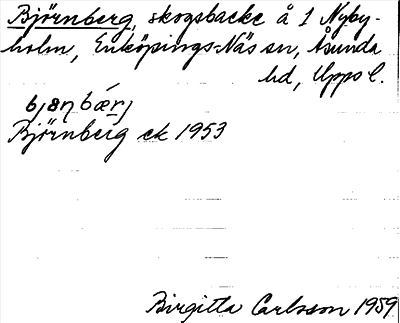 Björnberg, skogsbacke å 1 Nyby-
holm, Enköpings-Näs sn, Åsunda
hd, Upps l.
Björnberg ek 1953
Birgitta Carlsson 1959